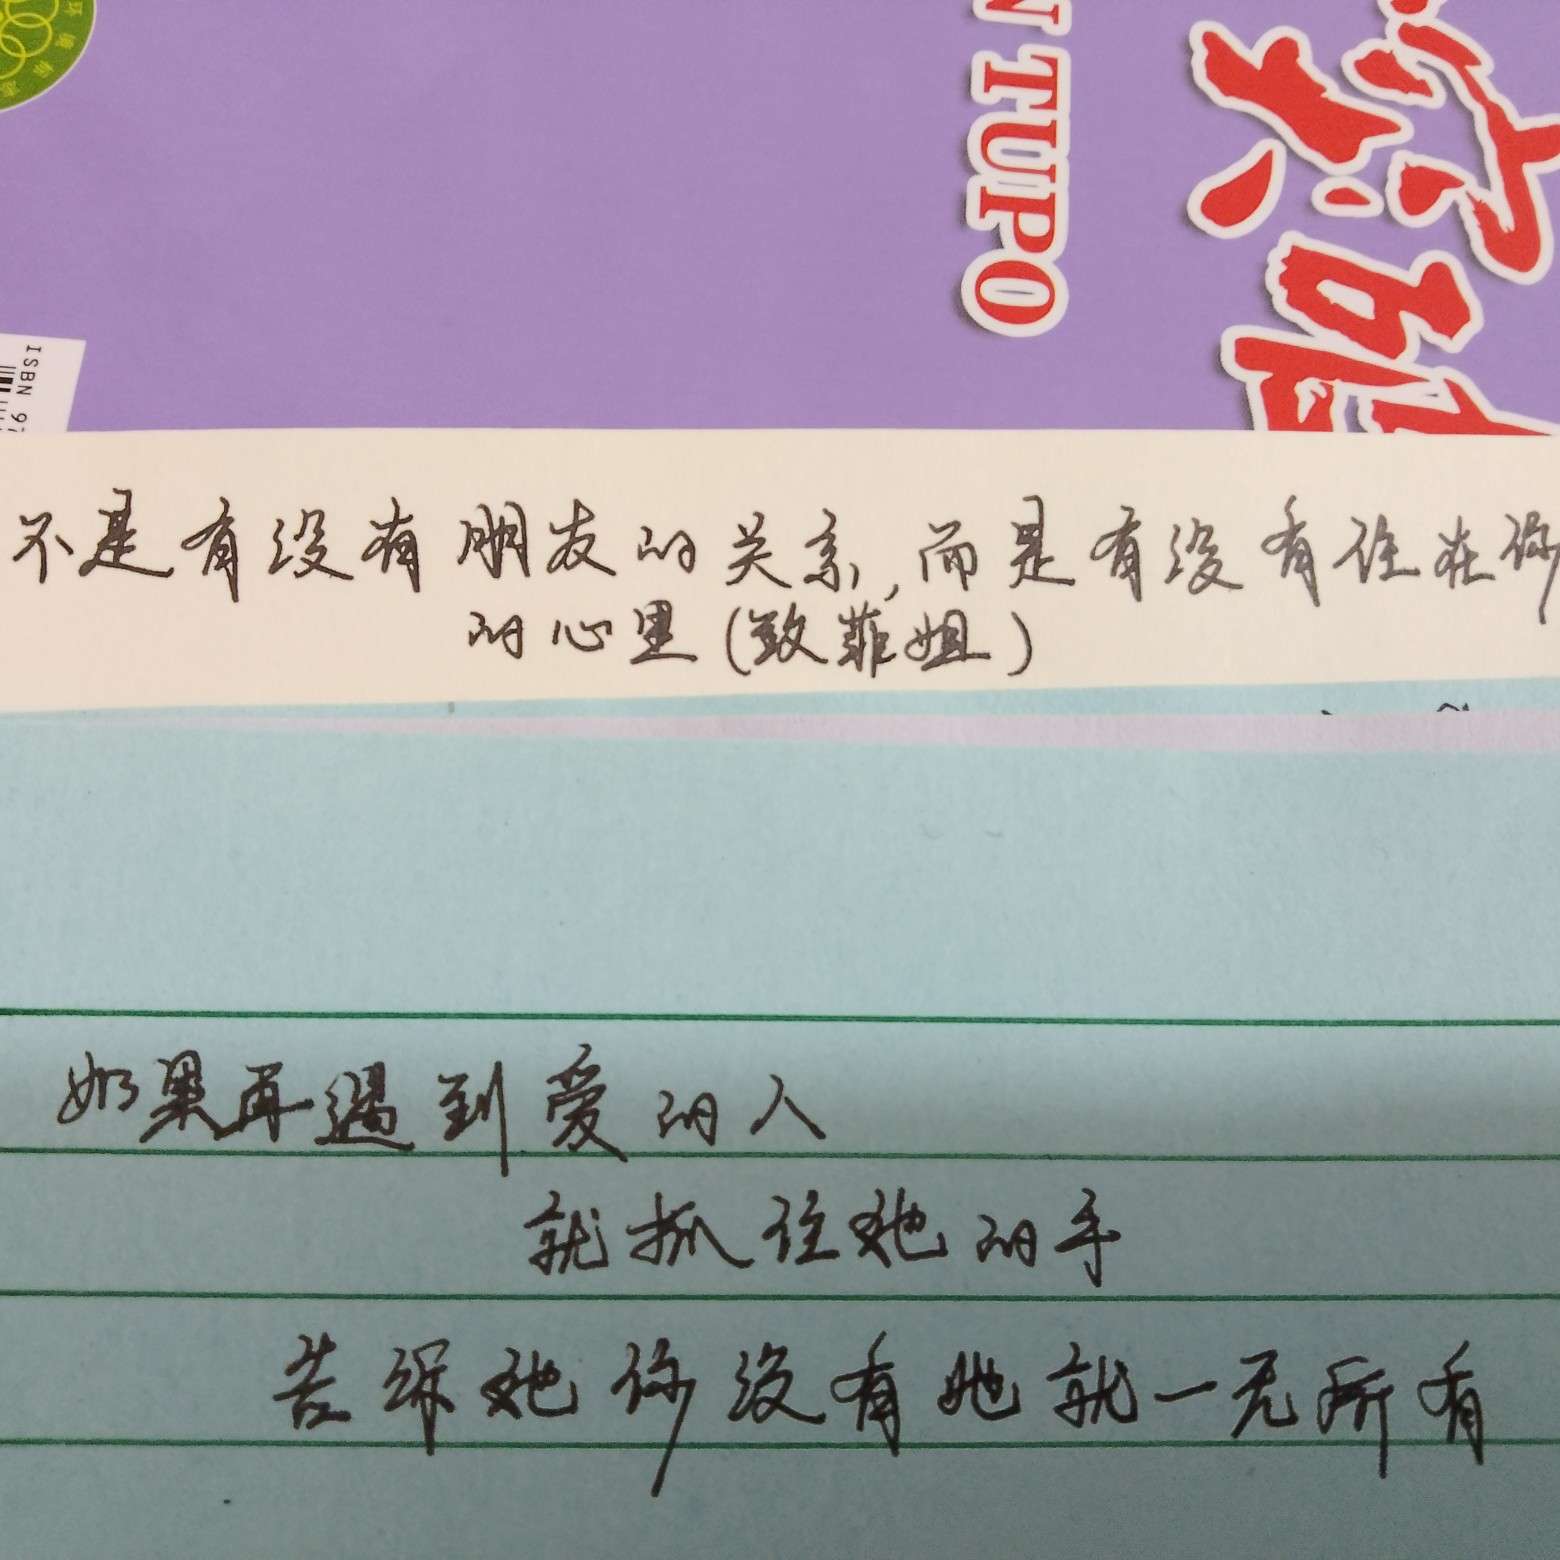 N TUPO
ISBN 97
不是有没有朋友的关系,而是有没有住在你
的心里(致菲姐)
如果再遇到爱的人
就抓住她的手
告诉她你没有她就一无所有